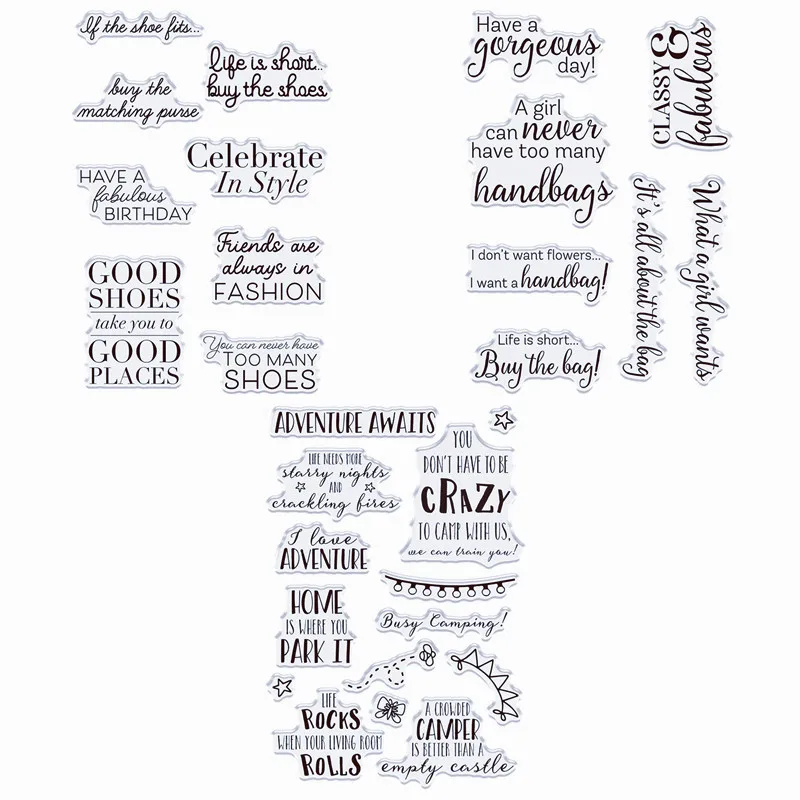 If the shoe fits...
life is short...
buy the shoes
buy the
matching purse
Celebrate
In Style
HAVE A
fabulous
BIRTHDAY
Friends are
always in
FASHION
GOOD
SHOES
take you to
GOOD
PLACES
You can never have
TOO MANY
SHOES
Have a
gorgeous
day!
CLASSY &
fabulous
A girl
can never
have too many
handbags
It's all about the bag
What a girl wants
I don't want flowers...
I want a handbag!
Life is short...
Buy the bag!
ADVENTURE AWAITS
YOU
DON'T HAVE TO BE
CRAZY
TO CAMP WITH US,
we can train you!
LIFE NEEDS MORE
starry nights
AND
crackling fires
I love
ADVENTURE
HOME
IS WHERE YOU
PARK IT
Busy Camping!
LIFE
ROCKS
WHEN YOUR LIVING ROOM
ROLLS
A CROWDED
CAMPER
IS BETTER THAN A
empty castle